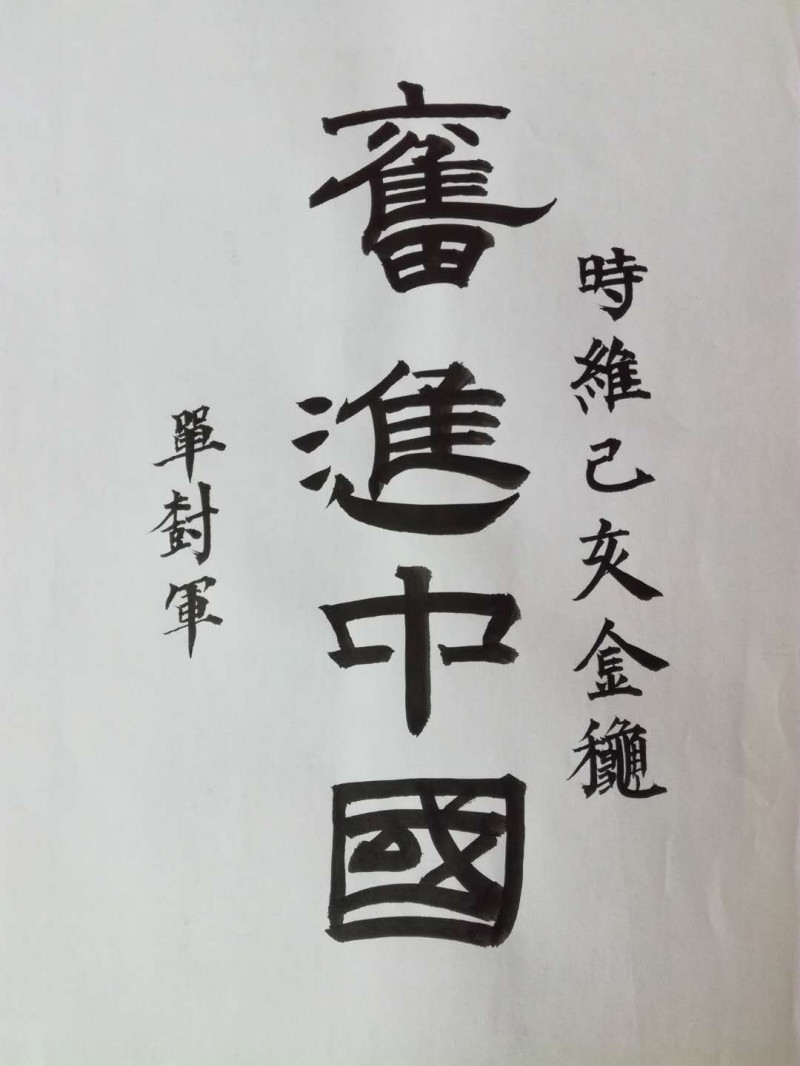 時維己亥金穐
奮進中國
單封軍